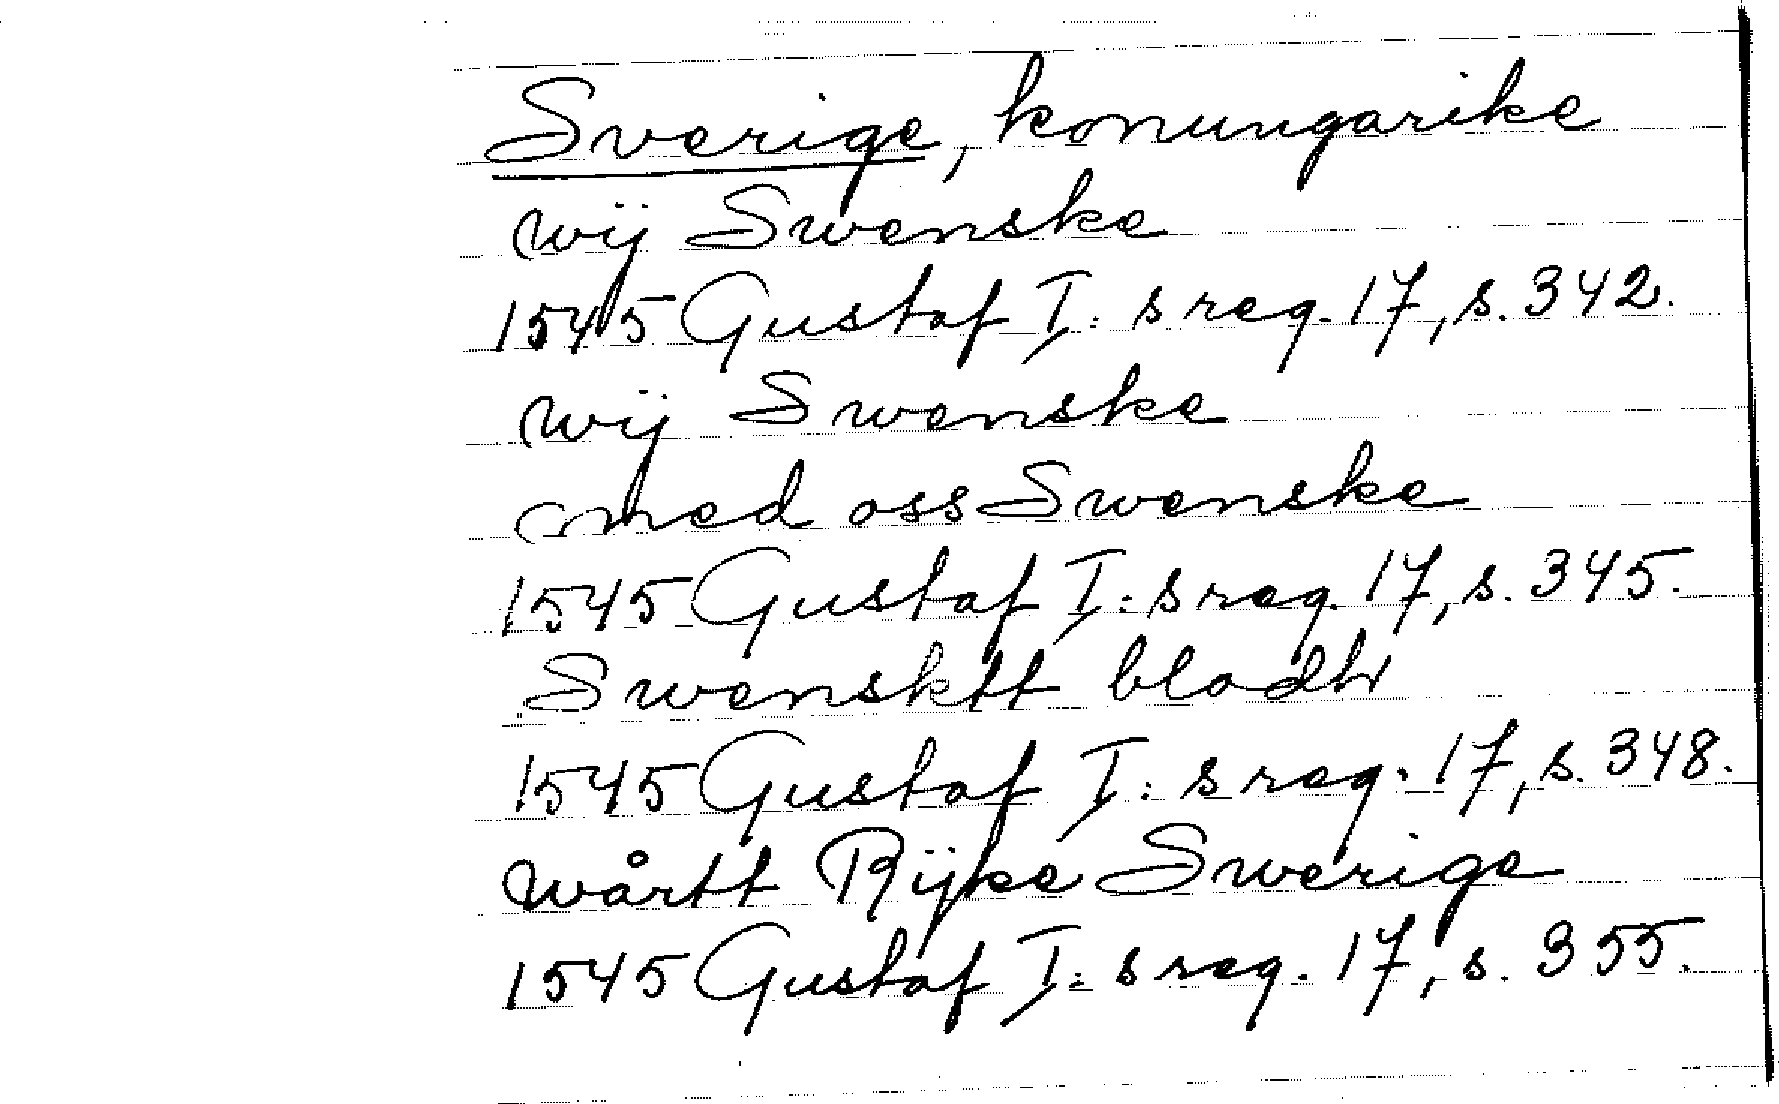 Sverige, konungarike
wij Swenske
1545 Gustaf I:s reg. 17, s. 342.
wij Swenske
med oss Swenske
1545 Gustaf I:s reg. 17, s. 345.
Swensktt blodh
1545 Gustaf I:s reg. 17, s. 348.
wårtt Rijke Swerige
1545 Gustaf I:s reg. 17, s. 355.